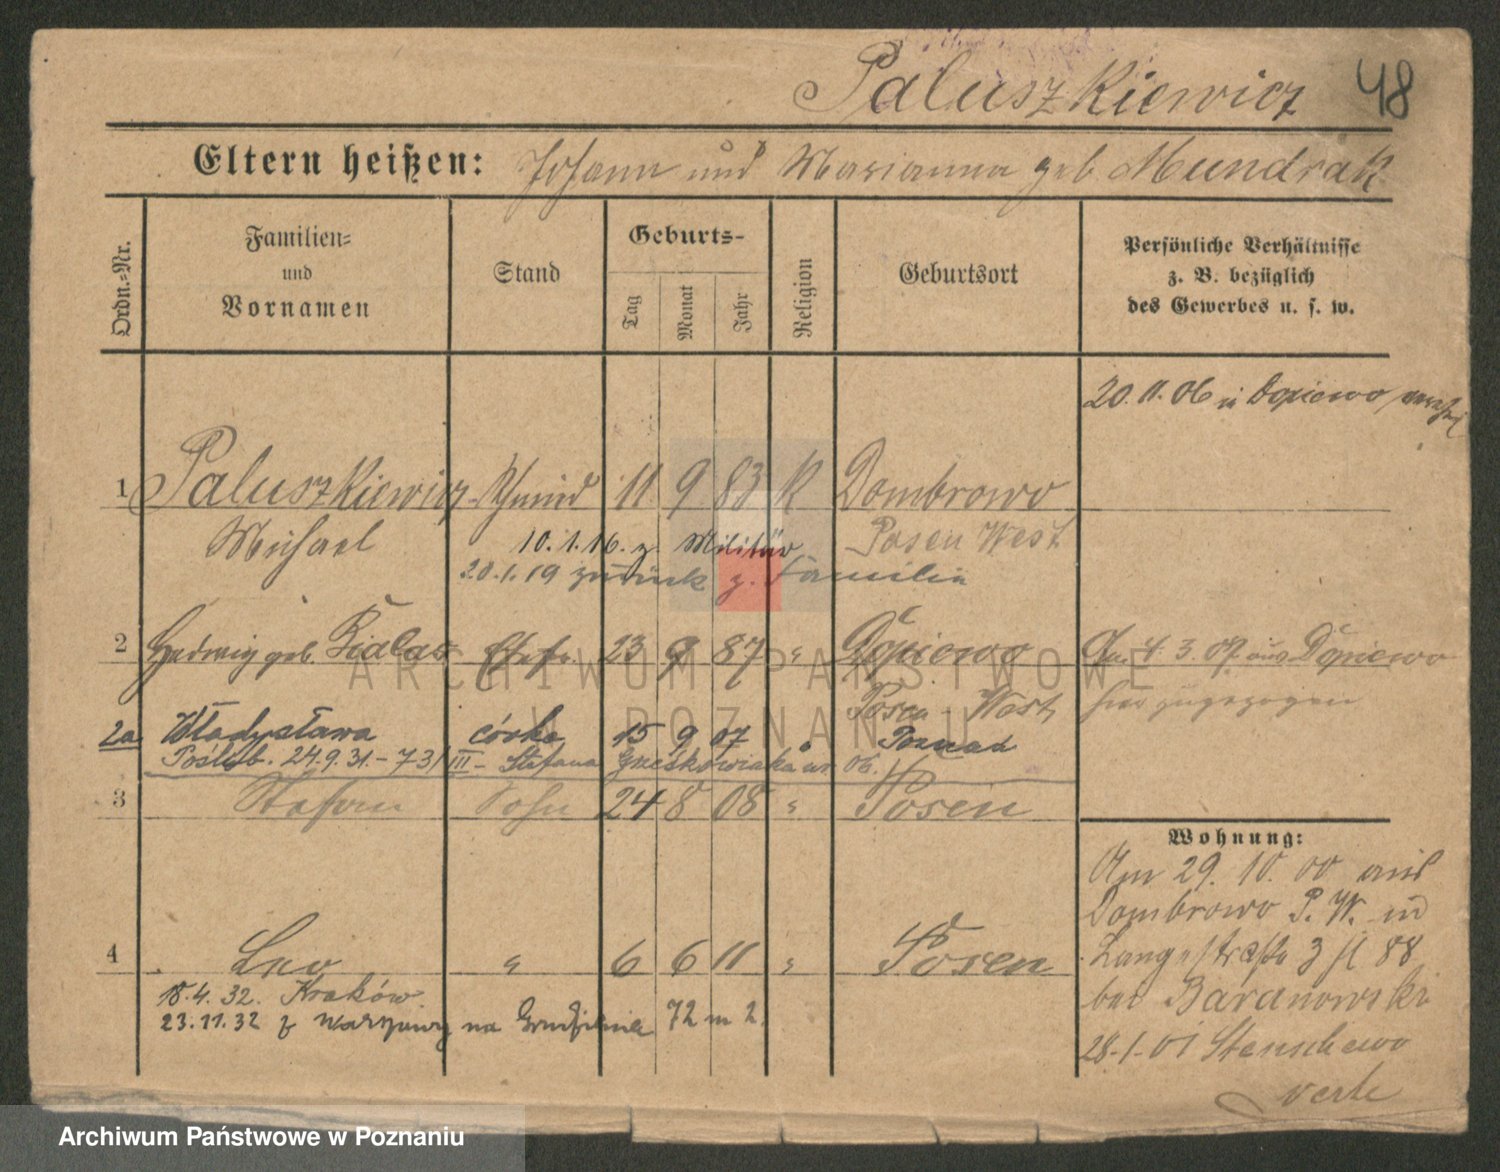 Paluszkiewicz 48
Eltern heißen: Johann und Marianna geb Mundrak
Ordn.-Nr.
Familien-
und
Vornamen
Stand
Geburts-
Tag
Monat
Jahr
Religion
Geburtsort
Persönliche Verhältnisse
z. B. bezüglich
des Gewerbes u. s. w.
20.11.06 in Dopiewo
1 Paluszkiewicz Schmied 11 9 83 K Dombrowo
Michael
10.1.16. z. Militär Posen West
20.1.19 zurück z. Familie
2 Hedwig geb. Bialas Ehefr. 23 9 87 " Dopiewo
Am 4.3.07 aus Dopiewo
Posen West
hier zugezogen
2a Władysława córka 15 9 07 " Poznań
Poślub. 24.9.31.- 731/III - Stefana
3 Stefan Sohn 24 8 08 " Posen
Wohnung:
Am 29. 10. 00 aus
Dombrowo P. W. in
Langestraße 3 88
bei Baranowski
28-1-01 Stenschewo
verz
4 Leo " 6 6 11 " Posen
18.4.32. Kraków.
23.11.32 z Warszawy na 72 m 2.
ARCHIWUM PAŃSTWOWE
W POZNANIU
Archiwum Państwowe w Poznaniu